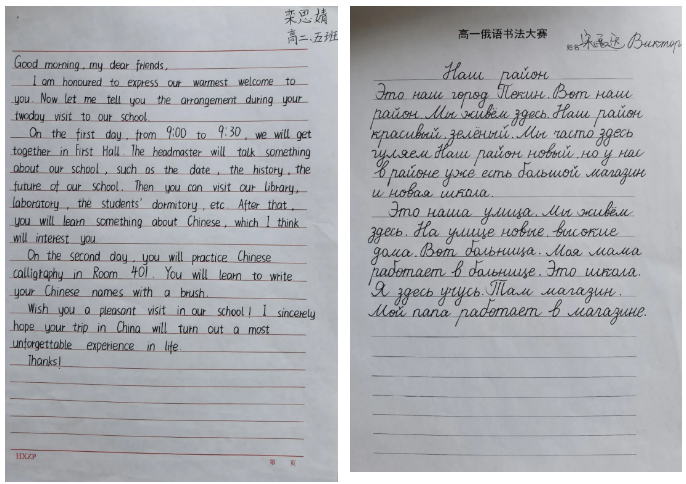 栾思婧
高二、五班
Good morning, my dear friends,
I am honoured to express our warmest welcome to
you. Now let me tell you the arrangement during your
twoday visit to our school.
On the first day, from 9:00 to 9:30, we will get
together in First Hall. The headmaster will talk something
about our school, such as the date, the history, the
future of our school. Then you can visit our library,
laboratory, the students' dormitory, etc. After that,
you will learn something about Chinese, which I think
will interest you
On the second day, you will practice Chinese
calligraphy in Room 401. You will learn to write
your Chinese names with a brush.
Wish you a pleasant visit in our school! I sincerely
hope your trip in China will turn out a most
unforgettable experience in life.
Thanks!
HXZP
第 页
高一俄语书法大赛
姓名 Виктор
Наш район
Это наш город Пекин. Вот наш
район. Мы живём здесь. Наш район
красивый, зелёный. Мы часто здесь
гуляем. Наш район новый, но у нас
в районе уже есть большой магазин
и новая школа.
Это наша улица. Мы живём
здесь. На улице новые, высокие
дома. Вот больница. Моя мама
работает в больнице. Это школа.
Я здесь учусь. Там магазин.
Мой папа работает в магазине.